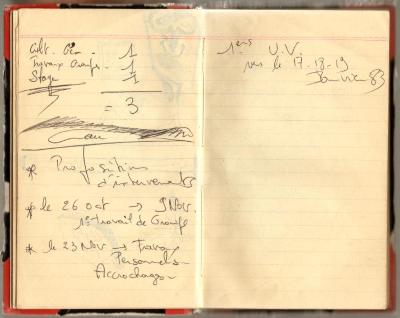 Cult. Gén. 1
Travaux Groupe. 1
Stage 1
= 3
* Propositions
d'intervenants
* le 26 oct → 9 Nov.
1er travail de Groupe
* le 23 Nov → Travaux
Personnels
Accrochage
1ers U.V.
vers le 17-18-19
Janvier 83